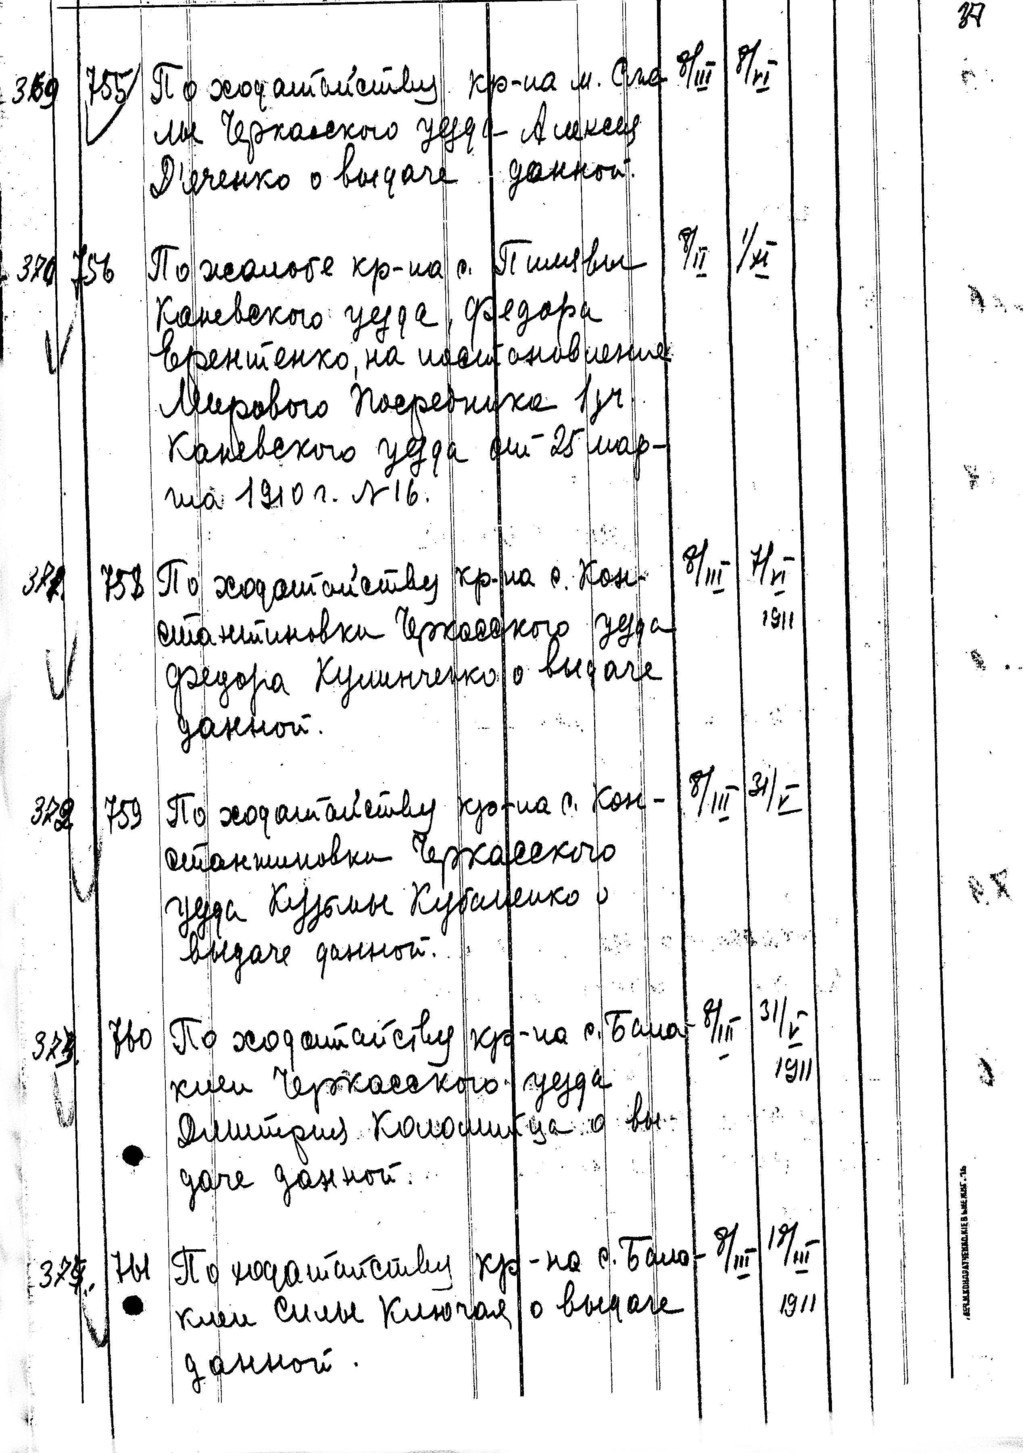 37
369 755 По ходатайству кр-на м. Сме- 8/III 8/VI
лы Черкасского уезда Алексея
Д'яченко о выдаче данной.
370 756 По жалобе кр-на с. Пилявы 8/II 1/XI
Каневского уезда, Федора
Ерентенко, на постановление
Мирового Посредника 1 уч.
Каневского уезда от 25 мар-
та 1910 г. N 16.
371. 758 По ходатайству кр-на с. Кон- 8/III 7/VI
стантиновки Черкасского уезда 1911
Федора Куминченко о выдаче
данной.
372 759 По ходатайству кр-на с. Кон- 8/III 31/V
стантиновки Черкасского
уезда Кузьмы Кубаненко о
выдаче данной.
373. 760 По ходатайству кр-на с. Бала- 8/III 31/V
клеи Черкасского уезда 1911
Дмитрия Коломийца о вы-
даче данной.
374. 761 По ходатайству кр-на с. Бала- 8/III 18/III
клеи Силы Ключая о выдаче 1911
данной.